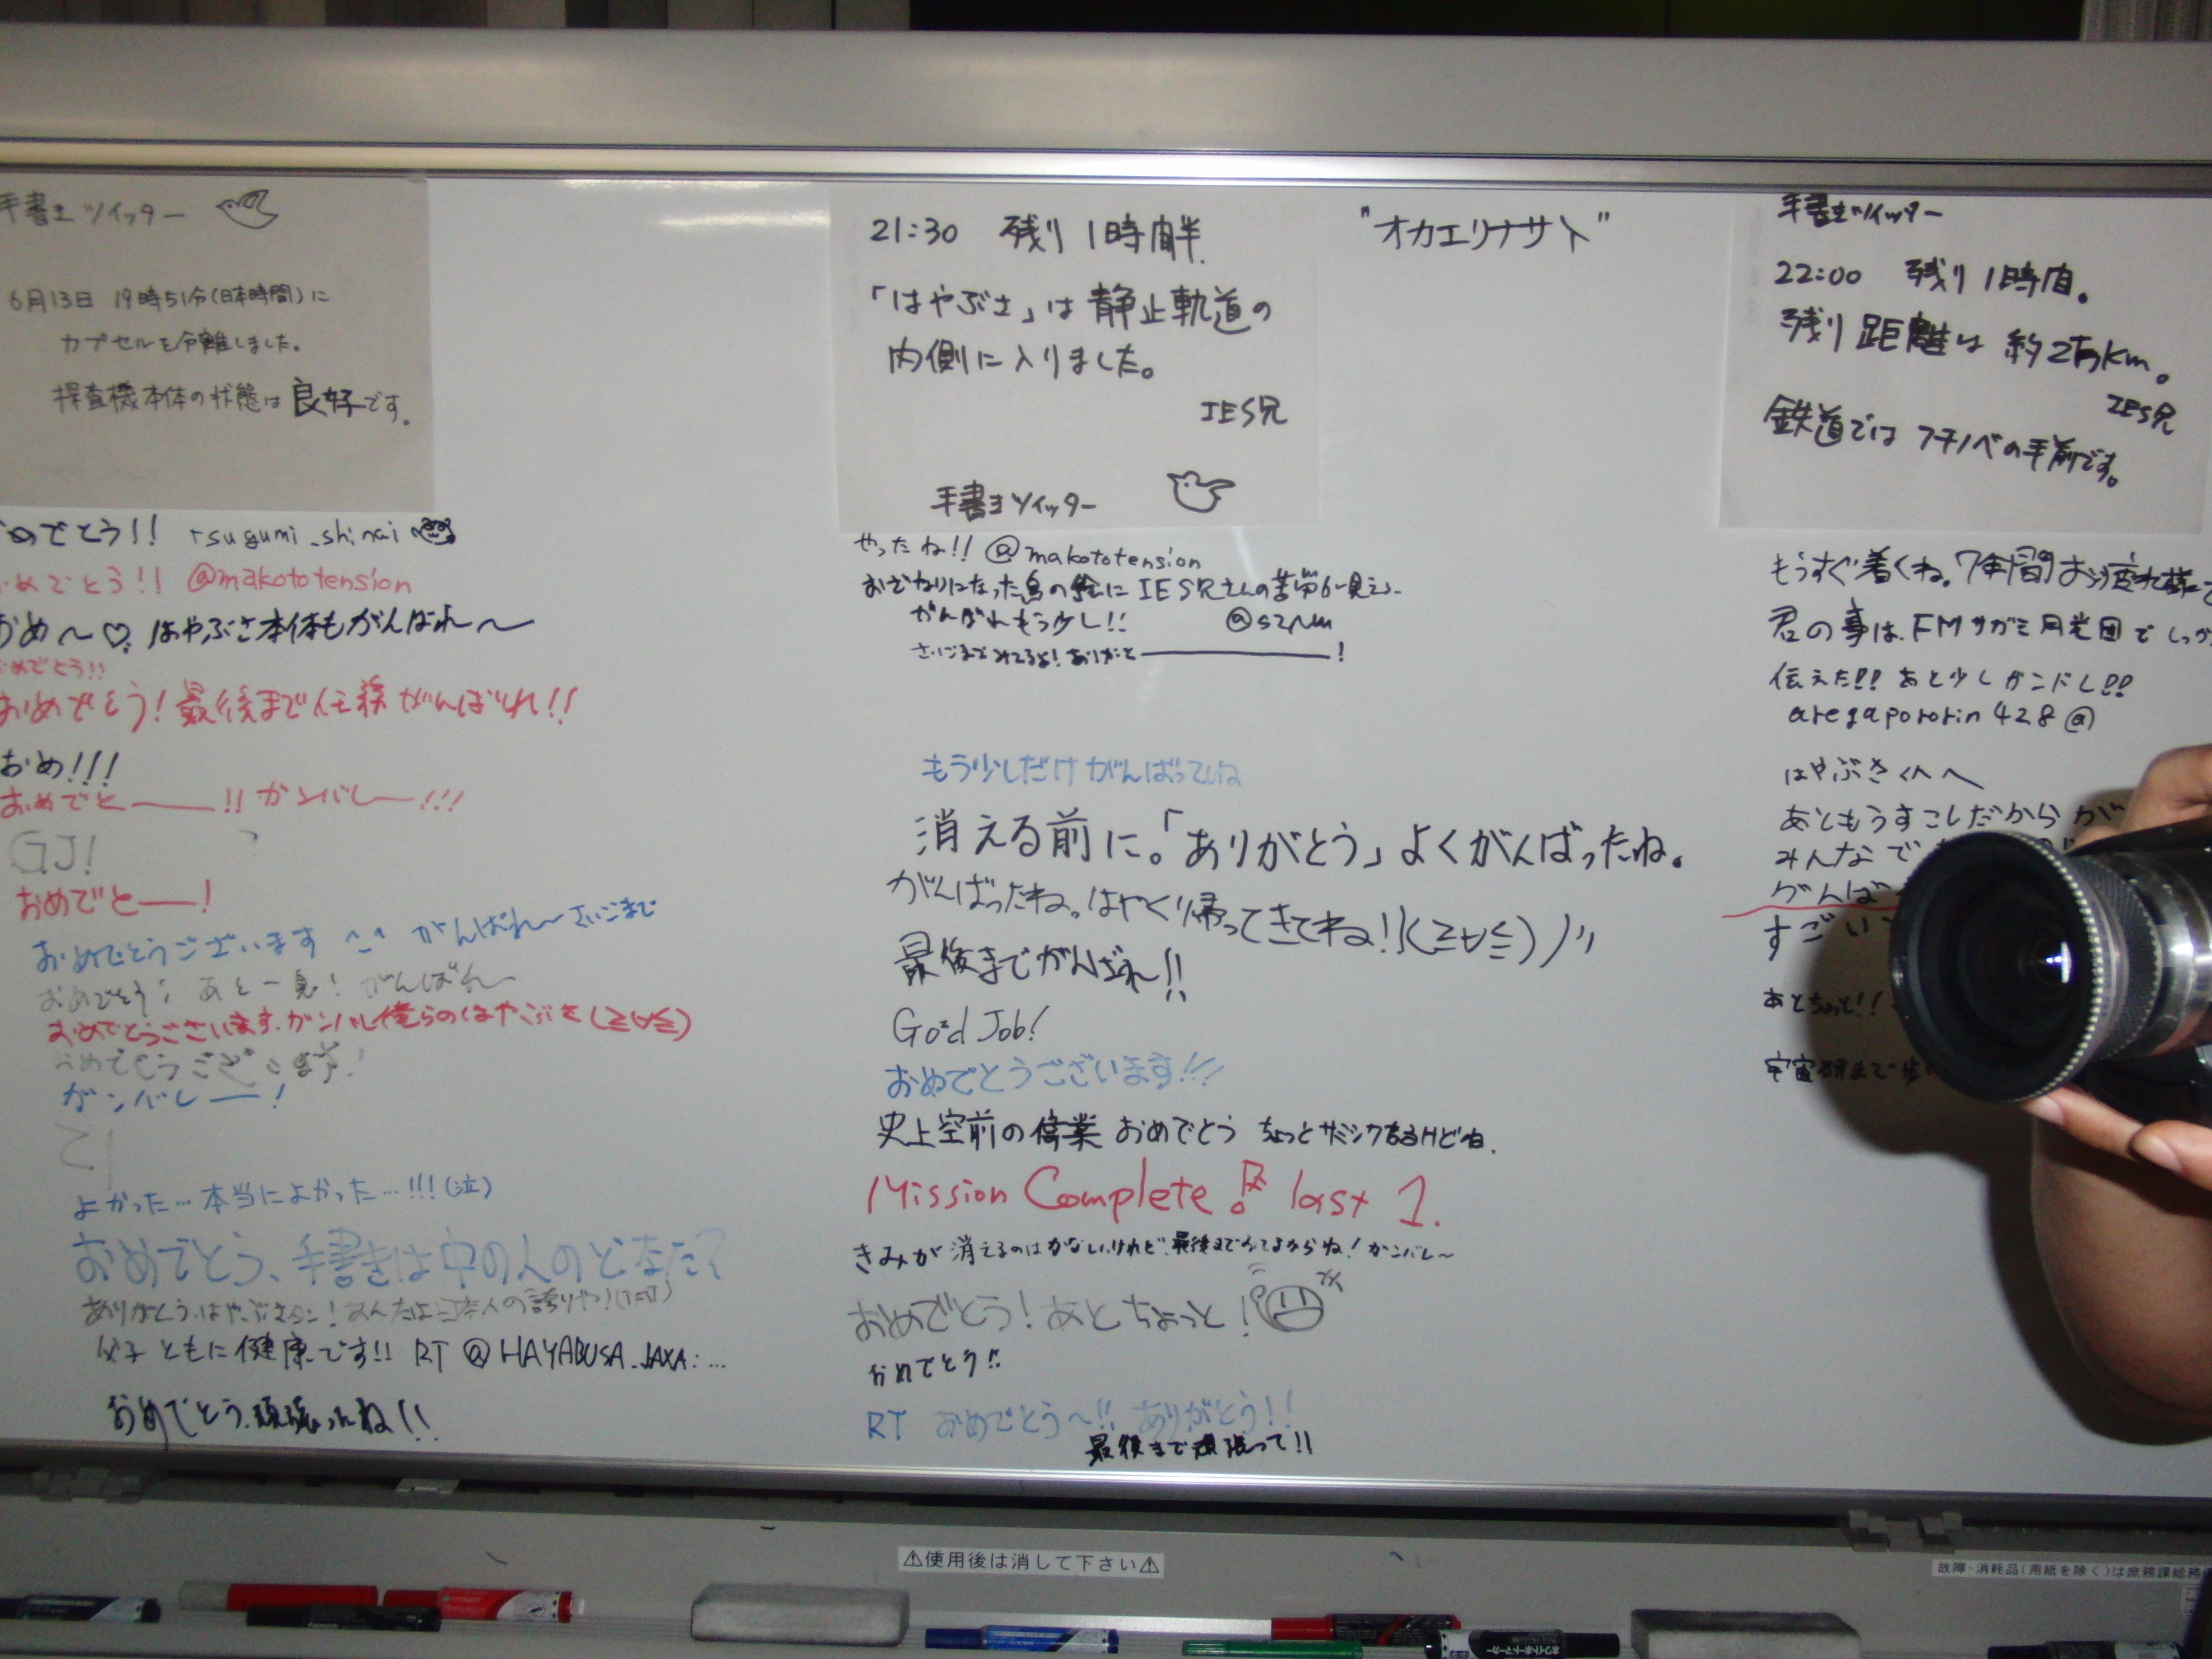 手書きツイッター
6月13日 19時51分(日本時間)に
カプセルを分離しました。
探査機本体の状態は良好です。
めでとう!! tsugumi_shinai
めでとう!! @makototension
おめ〜♡ はやぶさ本体もがんばれ〜
めでとう!!
おめでとう!最後まで任務がんばれ!!
おめ!!!
おめでと――!! ガンバレー!!!
GJ!
おめでと――!
おめでとうございます ^^ がんばれ〜さいごまで
おめでとう! あと一息! がんばれ〜
おめでとうございます。ガンバレ俺らのはやぶさ(≧∀≦)
おめでとうございます!
ガンバレー!
よかった…本当によかった…!!!(泣)
おめでとう、手書きは中の人のどなた?
ありがとう、はやぶさタン!あんたは日本人の誇りや!(TдT)
父子ともに健康です!! RT @HAYABUSA_JAXA: …
おめでとう、頑張ったね!!
21:30 残り1時間半.
「はやぶさ」は静止軌道の
内側に入りました。
IES兄
手書きツイッター
"オカエリナサト"
やったね!! @makototension
おざなりになった鳥の絵にIES兄さんの苦労が見え
がんばれもう少し!!
さいごまでみてるよ!ありがと――――!
もう少しだけがんばってね
消える前に。「ありがとう」よくがんばったね。
がんばったね。はやく帰ってきてね!!(≧∀≦)ノ〃
最後までがんばれ!!
Good Job!
おめでとうございます!!!
史上空前の偉業 おめでとう ちょっとサミシクなるけどね.
Mission Complete! last 1.
きみが消えるのはかなしいけれど、最後までみてるからね!ガンバレ〜
おめでとう!あとちょっと!
おめでとう!!
RT おめでとう〜!! ありがとう!!
最後まで頑張って!!
手書きツイッター
22:00 残り1時間。
残り距離は約2万km。
IES兄
鉄道ではフチノベの手前です。
もうすぐ着くね。7年間お疲れ様
君の事は、FMサガミ月光団でしっか
伝えた!! あと少しガンバレ!!
aregapororin428@
はやぶさくんへ
あともうすこしだからが
みんなで
がんば
すごい
あとちょっと!!
宇宙研まで歩
⚠使用後は消して下さい⚠
故障・消耗品(用紙を除く)は庶務課総務